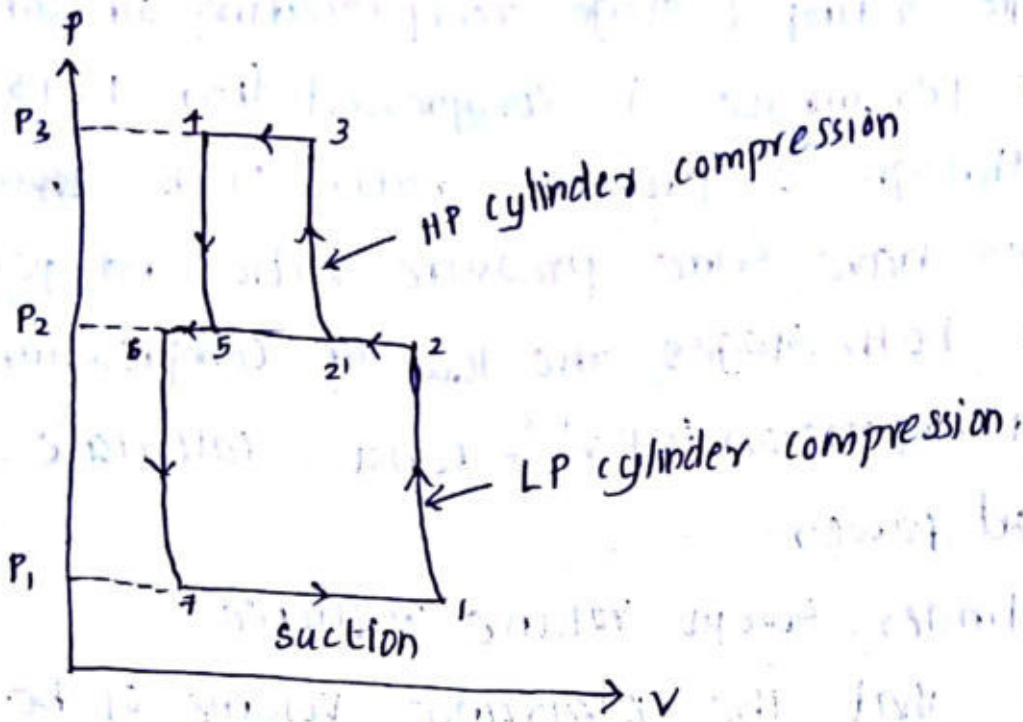 P
P3
4
3
HP cylinder compression
P2
6
5
2'
2
LP cylinder compression.
P1
7
1
suction
V